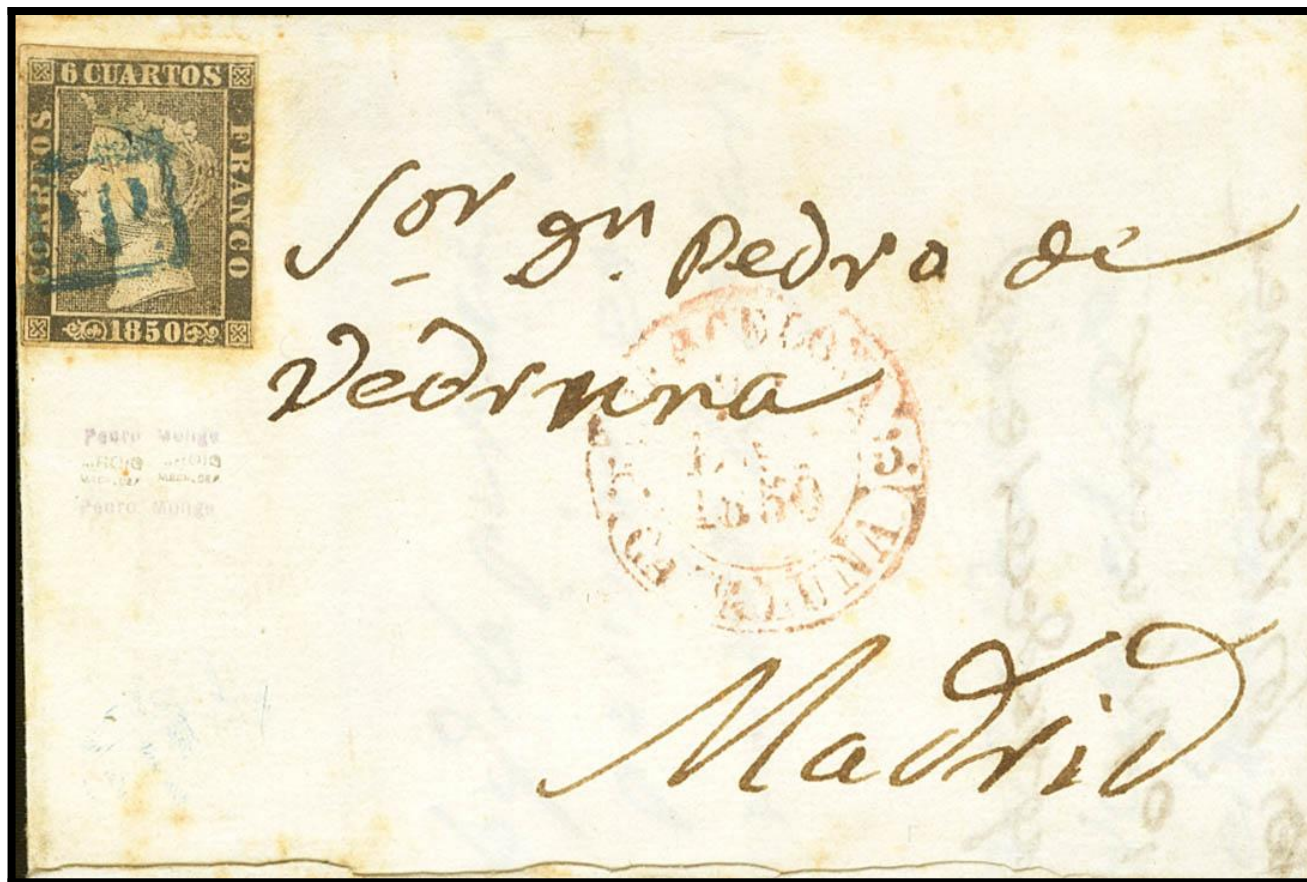 6 CUARTOS
CORREOS
FRANCO
1850
Sor Dn. Pedro de
Vedruna
1850
CATALUÑA
Pedro Monge
Pedro Monge
Madrid